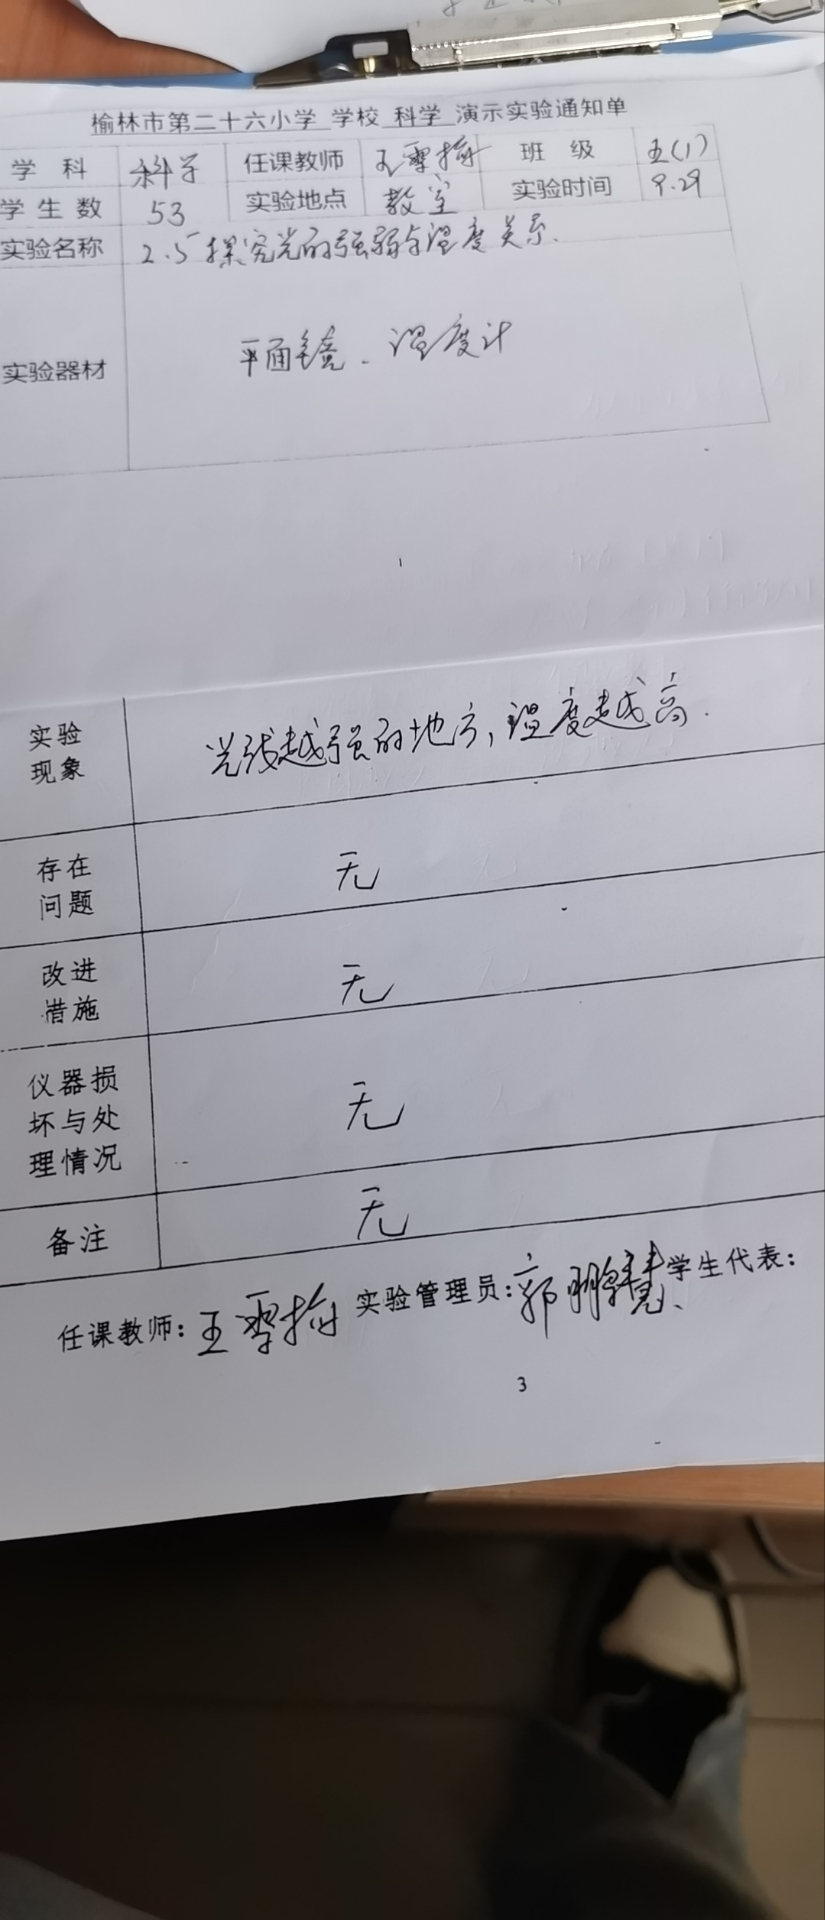 榆林市第二十六小学 学校 科学 演示实验通知单
学 科 科学 任课教师 王雪梅 班 级 五(1)
学生数 53 实验地点 教室 实验时间 9.29
实验名称 2.5探究光的强弱与温度关系.
实验器材 平面镜、温度计
1
实验
现象
光线越强的地方,温度越高.
存在
问题
无
改进
措施
无
仪器损
坏与处
理情况
无
备注 无
任课教师:王雪梅 实验管理员:郭 学生代表:
3